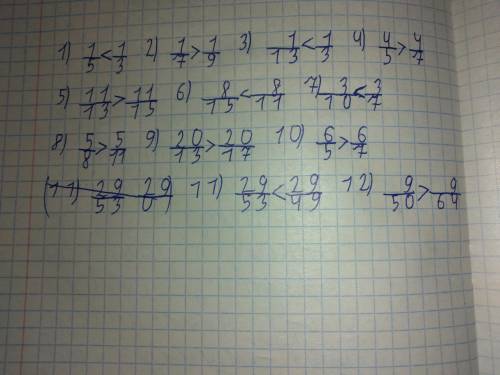 1) 1/5 < 1/3 2) 1/7 > 1/9 3) 1/13 < 1/3 4) 4/5 > 4/7
5) 11/13 > 11/15 6) 8/15 < 8/11 7) 3/10 < 3/7
8) 5/8 > 5/11 9) 20/13 > 20/17 10) 6/5 > 6/7
(11) 29/53 29/0) 11) 29/53 < 29/49 12) 9/50 > 9/64